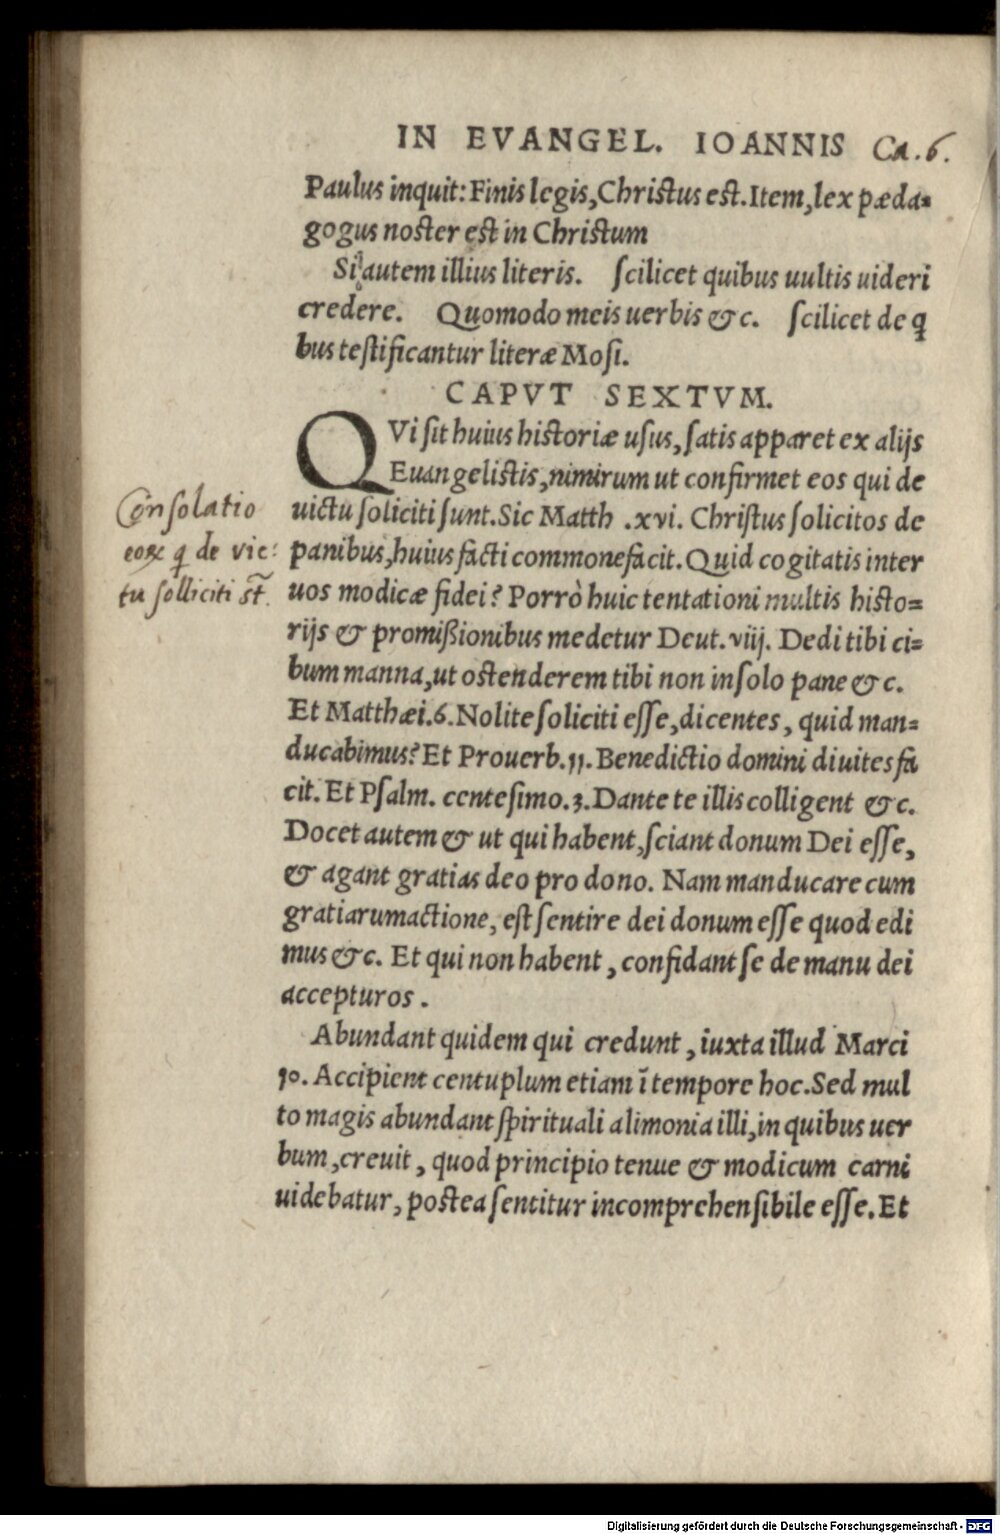 IN EVANGEL. IOANNIS Ca. 6.
Paulus inquit: Finis legis, Christus est. Item, lex pæda=
gogus noster est in Christum
Si autem illius literis. scilicet quibus uultis uideri
credere. Quomodo meis uerbis &c. scilicet de q
bus testificantur literæ Mosi.
CAPVT SEXTVM.
QVi sit huius historiæ usus, satis apparet ex alijs
Euangelistis, nimirum ut confirmet eos qui de
uictu soliciti sunt. Sic Matth .xvi. Christus solicitos de
panibus, huius facti commonefacit. Quid cogitatis inter
uos modicæ fidei? Porrò huic tentationi multis histo=
rijs & promißionibus medetur Deut. viij. Dedi tibi ci=
bum manna, ut ostenderem tibi non in solo pane &c.
Et Matthæi.6. Nolite soliciti esse, dicentes, quid man=
ducabimus? Et Prouerb.11. Benedictio domini diuites fa
cit. Et Psalm. centesimo.3. Dante te illis colligent &c.
Docet autem & ut qui habent, sciant donum Dei esse,
& agant gratias deo pro dono. Nam manducare cum
gratiarumactione, est sentire dei donum esse quod edi
mus &c. Et qui non habent, confidant se de manu dei
accepturos.
Abundant quidem qui credunt, iuxta illud Marci
10. Accipient centuplum etiam ī tempore hoc. Sed mul
to magis abundant spirituali alimonia illi, in quibus uer
bum, creuit, quod principio tenue & modicum carni
uidebatur, postea sentitur incomprehensibile esse. Et
Consolatio
eoꝝ q de vic:
tu solliciti st̄.
Digitalisierung gefördert durch die Deutsche Forschungsgemeinschaft - DFG